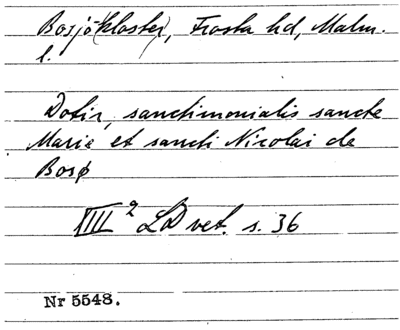 Bosjö(kloster), Frosta hd, Malm.
l.
Dotir, sanctimonialis sancte
Marie et sancti Nicolai de
Bosø
XIII 2 LD vet. s. 36
Nr 5548.